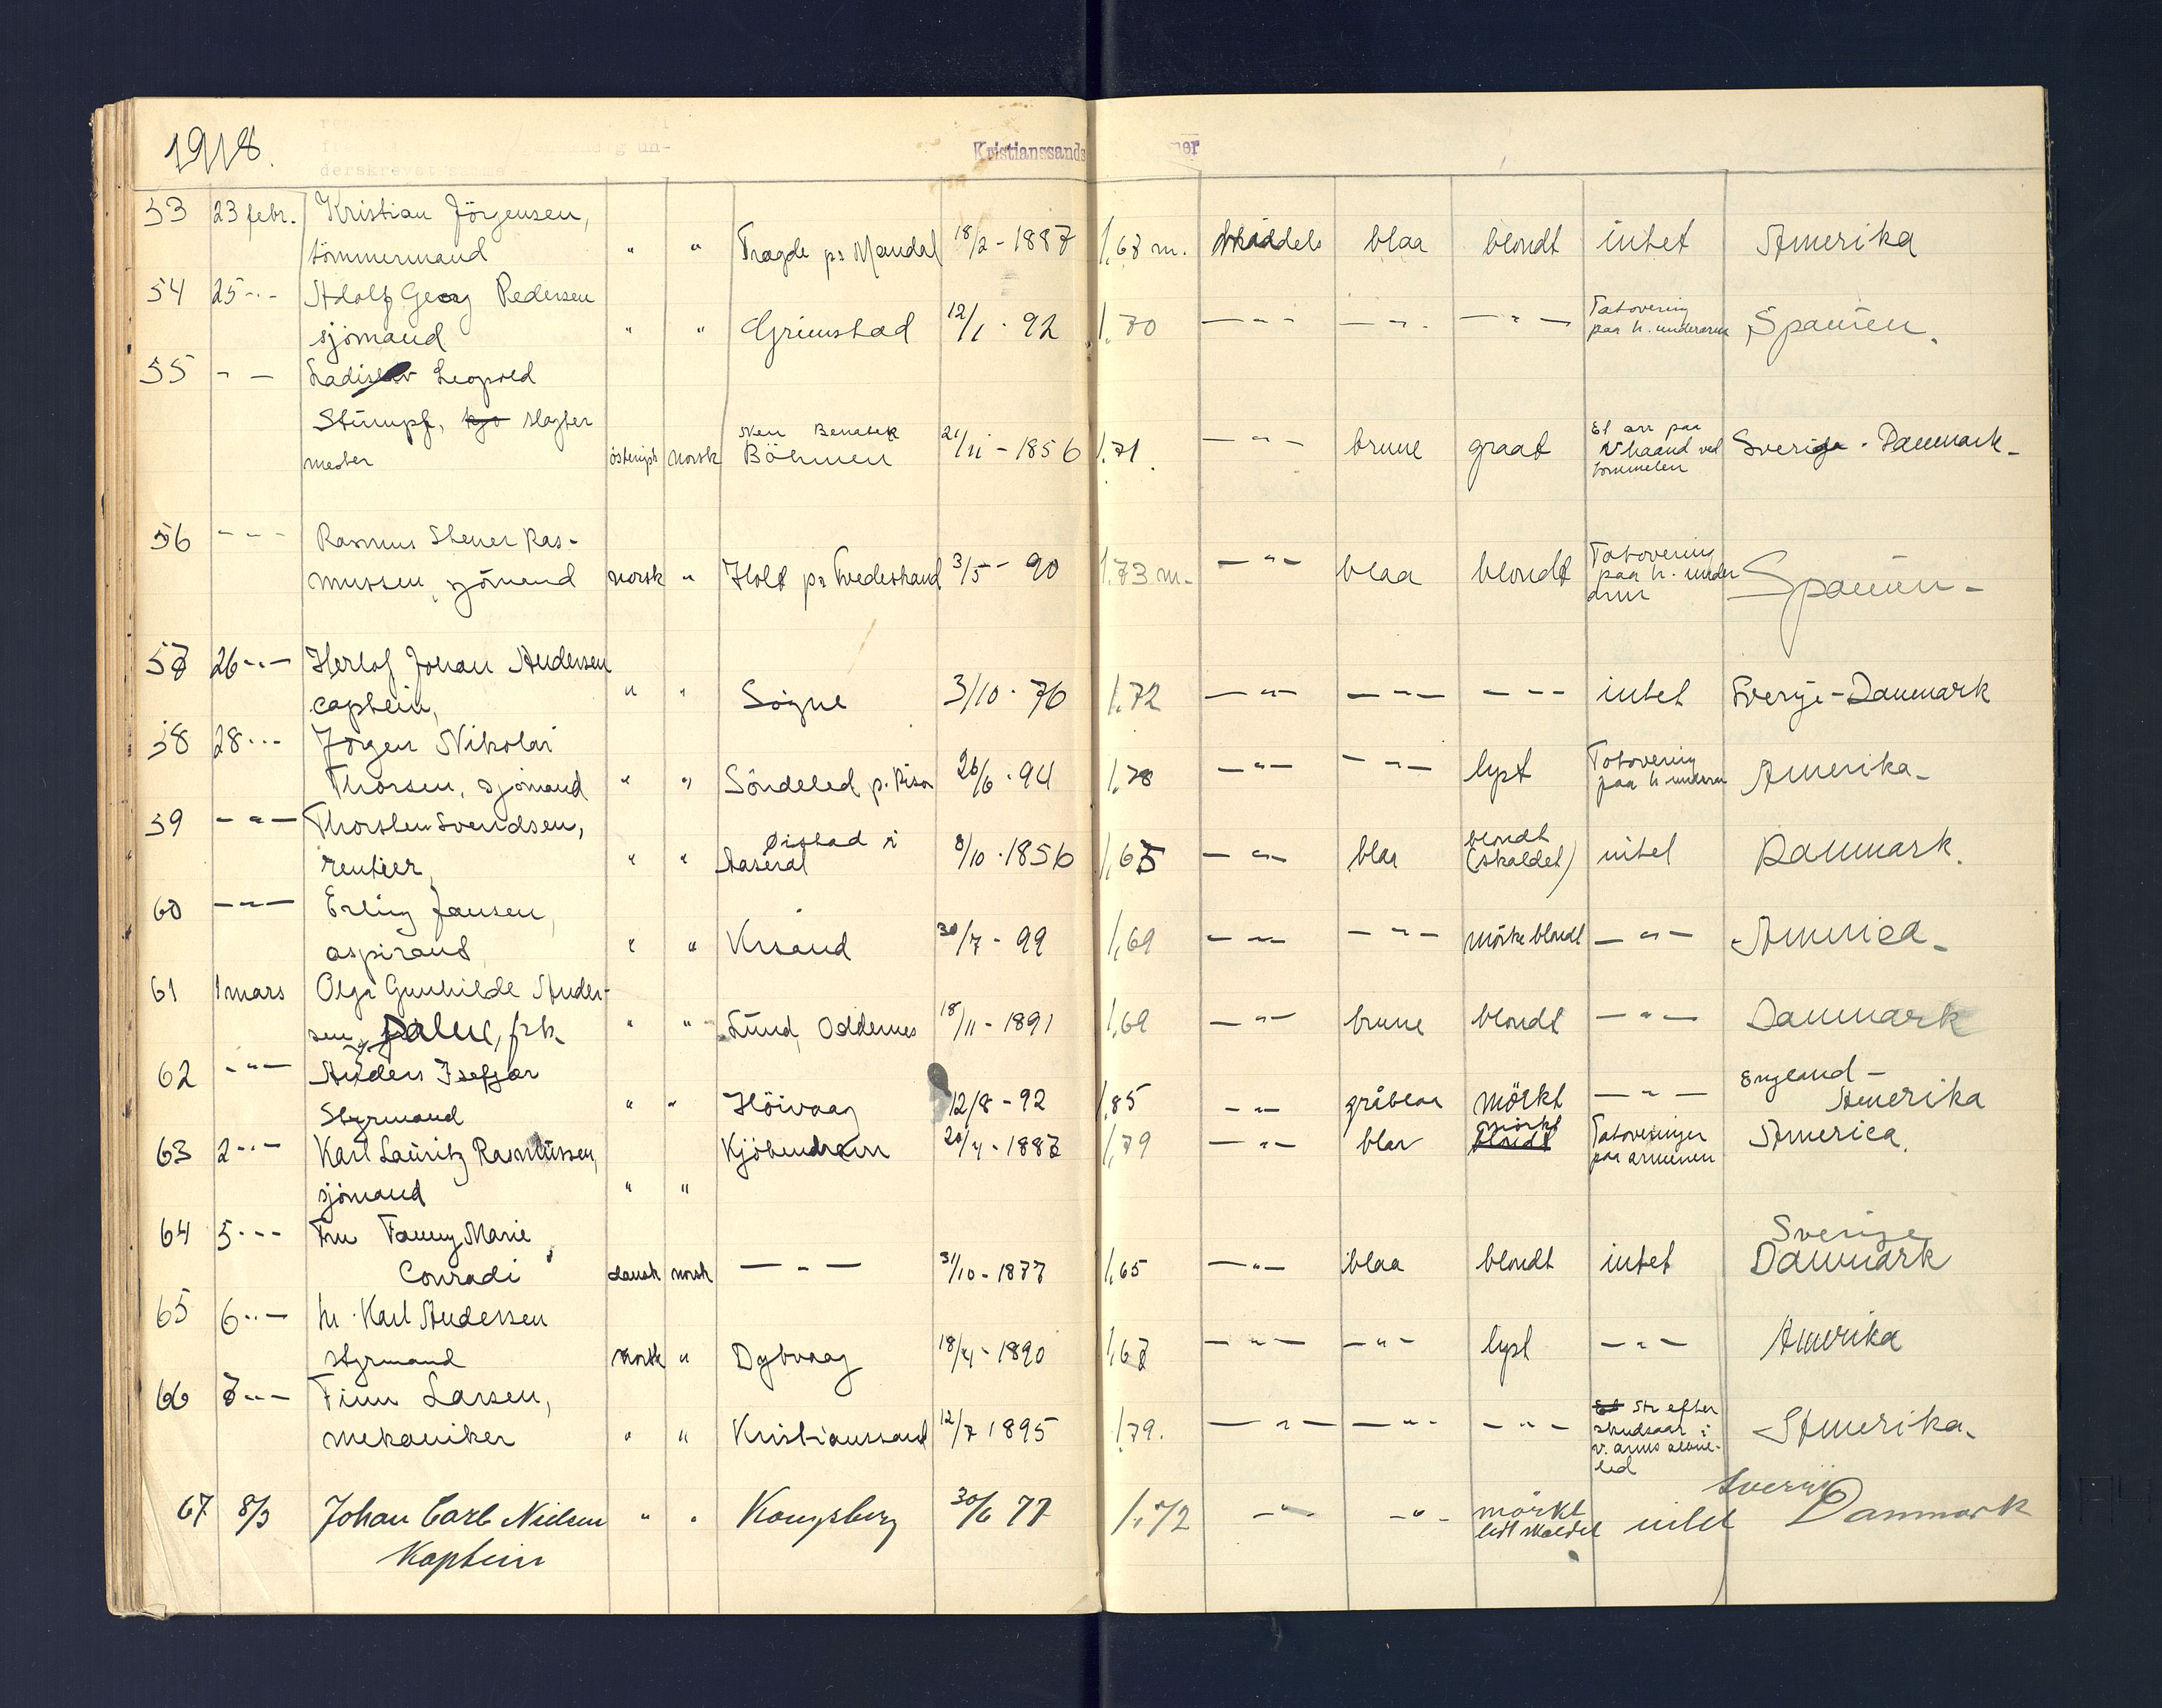 1918.
Kristianssands
53 23 febr. Kristian Jörgensen,
tömmermand " " Tragde pr Mandal 18/2 - 1887 1,68 m. middels blaa blondt intet Amerika
54 25 -"- Adolf Georg Pedersen
sjömand " " Grimstad 12/1 - 92 1,70 -"- -"- -"- Tatovering paa h. underarm Spanien.
55 - - Ladislav Leopold
Stumpf, slagter
mester östrigsk norsk Neu Benatek Böhmen 21/11 - 1856 1,71. -"- brune graat Et arr paa v haand ved tommelen Sverige - Danmark -
56 -"- Rasmus Stener Ras-
mussen, sjömand norsk " Holt pr Tvedestrand 3/5 - 90 1.73 m. -"- blaa blondt Tatovering paa h. under arm Spanien -
57 26 -"- Herlof Johan Andersen
captein, " " Sögne 3/10 - 76 1,72 -"- -"- -"- intet Sverige - Danmark
58 28 -"- Jörgen Nikolai
Thorsen, sjömand " " Söndeled p. Risör 26/6 - 94 1,78 -"- -"- lyst Tatovering paa h underarm Amerika -
59 -"- Thorsten Svendsen,
rentier, " " Øistad i Aaseral 8/10 - 1856 1,65 -"- blaa blondt (skaldet) intet Danmark.
60 -"- Erling Jansen,
aspirant, " " Krsand 30/7 - 99 1,69 -"- -"- mörke blondt -"- America -
61 1 mars Olga Gunhilde Ander-
sen, Dalne, frk. " " Lund, Oddernes 18/11 - 1891 1,69 -"- brune blondt -"- Danmark
62 -"- Anders Isefjær
Styrmand " " Höivaag 12/8 - 92 1,85 -"- gråblaa mörkt -"- England - Amerika
63 2 -"- Karl Lauritz Rasmussen,
sjömand " " Kjöbenhavn 20/4 - 1887 1,79 -"- blaa mörkt blondt Tatoveringer paa armenen America.
64 5 -"- Fru Fanny Marie
Conradi dansk norsk -"- 31/10 - 1877 1,65 -"- blaa blondt intet Sverige Danmark
65 6 -"- hr. Karl Andersen
styrmand norsk " Dybvaag 18/4 - 1890 1,67 -"- -"- lyst -"- Amerika
66 7 -"- Finn Larsen,
mekaniker " " Kristianssand 12/7 1895 1,79. -"- -"- -"- Arr efter skudsaar i v. arms albueled Amerika.
67 8/3 Johan Carl Nielsen
Kaptein " " Kongsberg 30/6 77 1,72 -"- -"- mörkt lidt skaldet intet Sverige Danmark